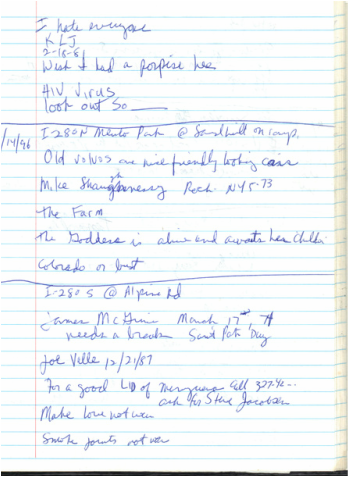 I hate everyone
KLJ
2-18-81
Wish I had a porpise here
HIV Virus
look out So
1/14/96 I-280N Menlo Park @ Sandhill on ramp.
Old volvos are nice friendly looking cars
Mike Shaughnessy Rock NY 5-73
the Farm
the Goddess is alive and awaits her
Colorado or bust
I-280 S @ Alpine Rd
James McGrin March 17th, 74
needs a break Saint Pat's Day
Joe Ville 12/21/87
For a good LID of call 327-42--
ask for Steve Jacobsen
Make love not war
Smoke joints not war